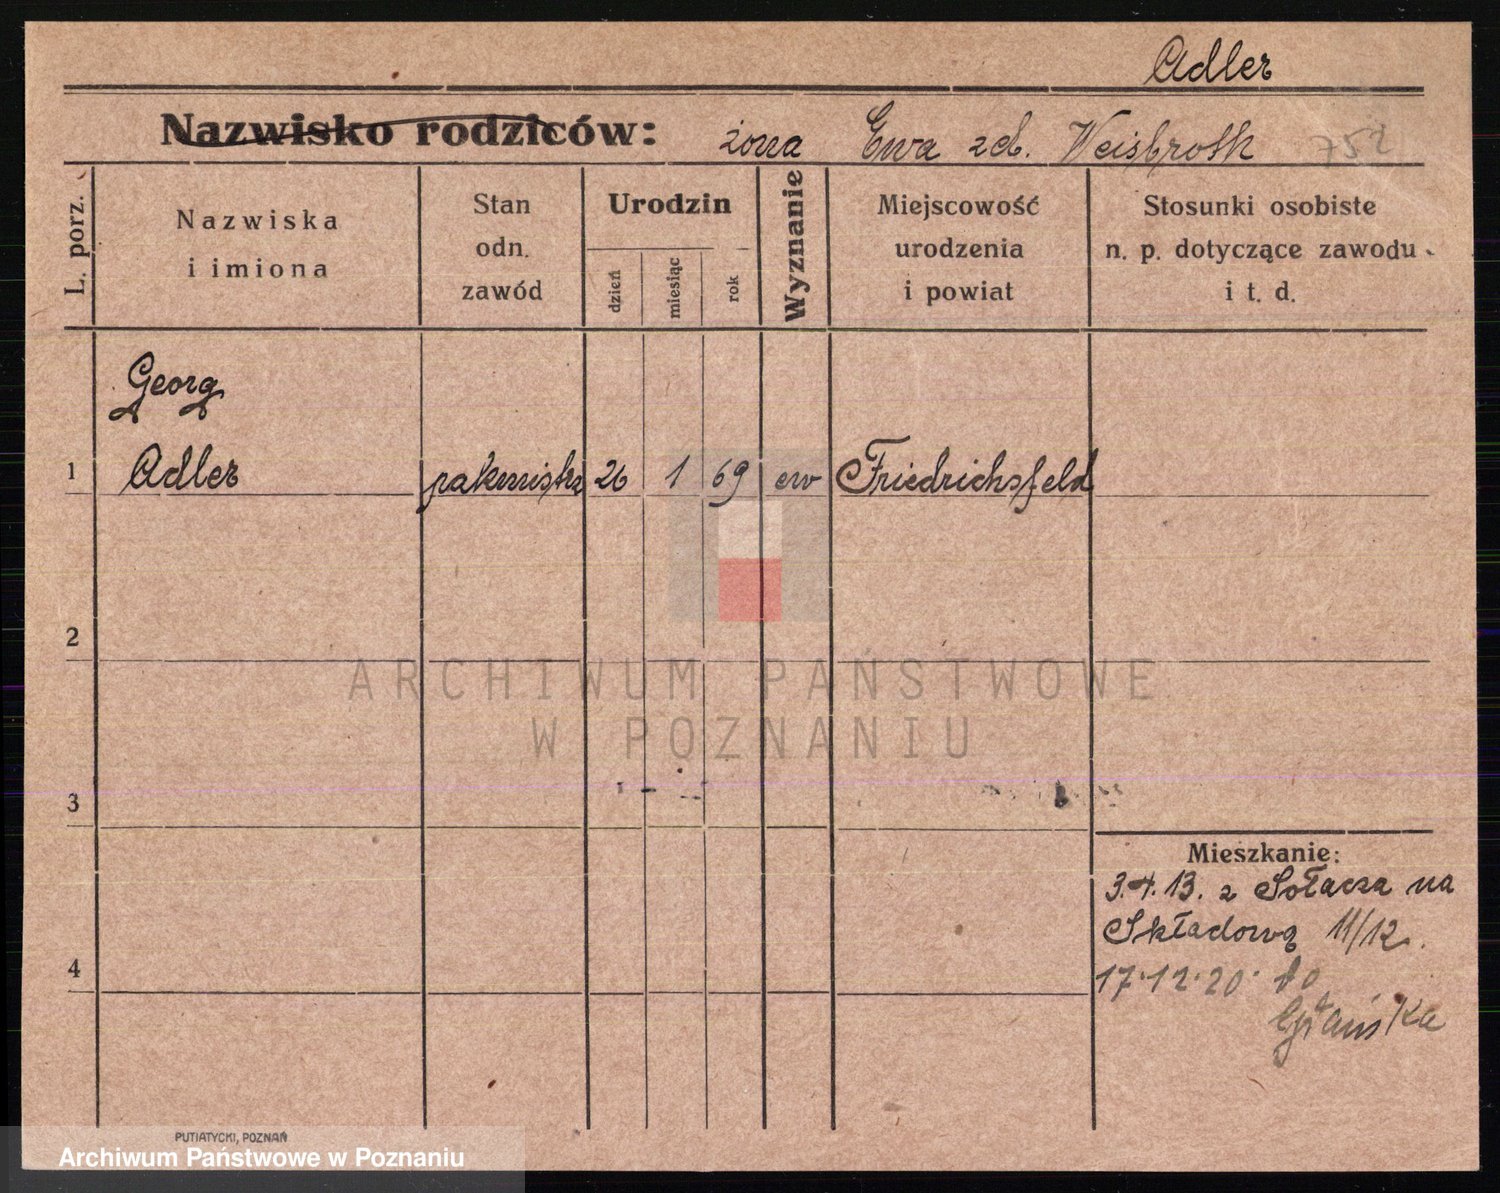 Adler
Nazwisko rodziców: żona Ewa zd. Weisbroth 752
L. porz.
Nazwiska
i imiona
Stan
odn.
zawód
Urodzin
dzień
miesiąc
rok
Wyznanie
Miejscowość
urodzenia
i powiat
Stosunki osobiste
n. p. dotyczące zawodu
i t. d.
Georg
1 Adler pakmistrz 26 1 69 ew Friedrichsfeld
2
ARCHIWUM PAŃSTWOWE
W POZNANIU
3
Mieszkanie:
3.4.13. z Sołacza na
Składową 11/12.
4
17.12.20. do
Gdańska
PUTIATYCKI, POZNAŃ
Archiwum Państwowe w Poznaniu